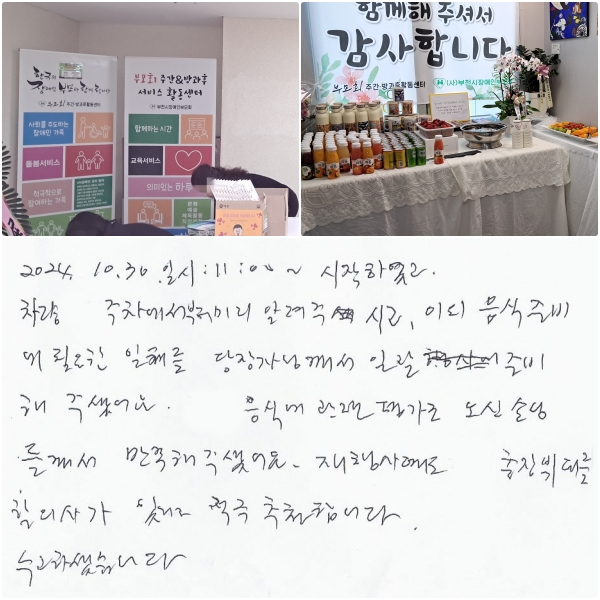 부모회 주간·방과후활동센터
사회를 주도하는
장애인 가족
돌봄서비스
참여하는 가족
부모회 주간&방과후
서비스 활동센터
부천시장애인부모회
함께하는 시간
교육서비스
의미있는 하루
함께해 주셔서
감사합니다
부모회 주간·방과후활동센터
(사)부천시장애인부모회
2024. 10.30. 일시:11:00~ 시작하였고.
차량 주차에서부터 미리 알려주 시고, 이외 음식 준비
에 필요한 일체를 담당자님께서 일괄 준비
해 주셨어요. 음식에 관련 평가는 오신 손님
들께서 만족해 주셨어요. 재행사에도 충진뷔페를
할 의사가 있고 적극 추천합니다.
수고하셨습니다